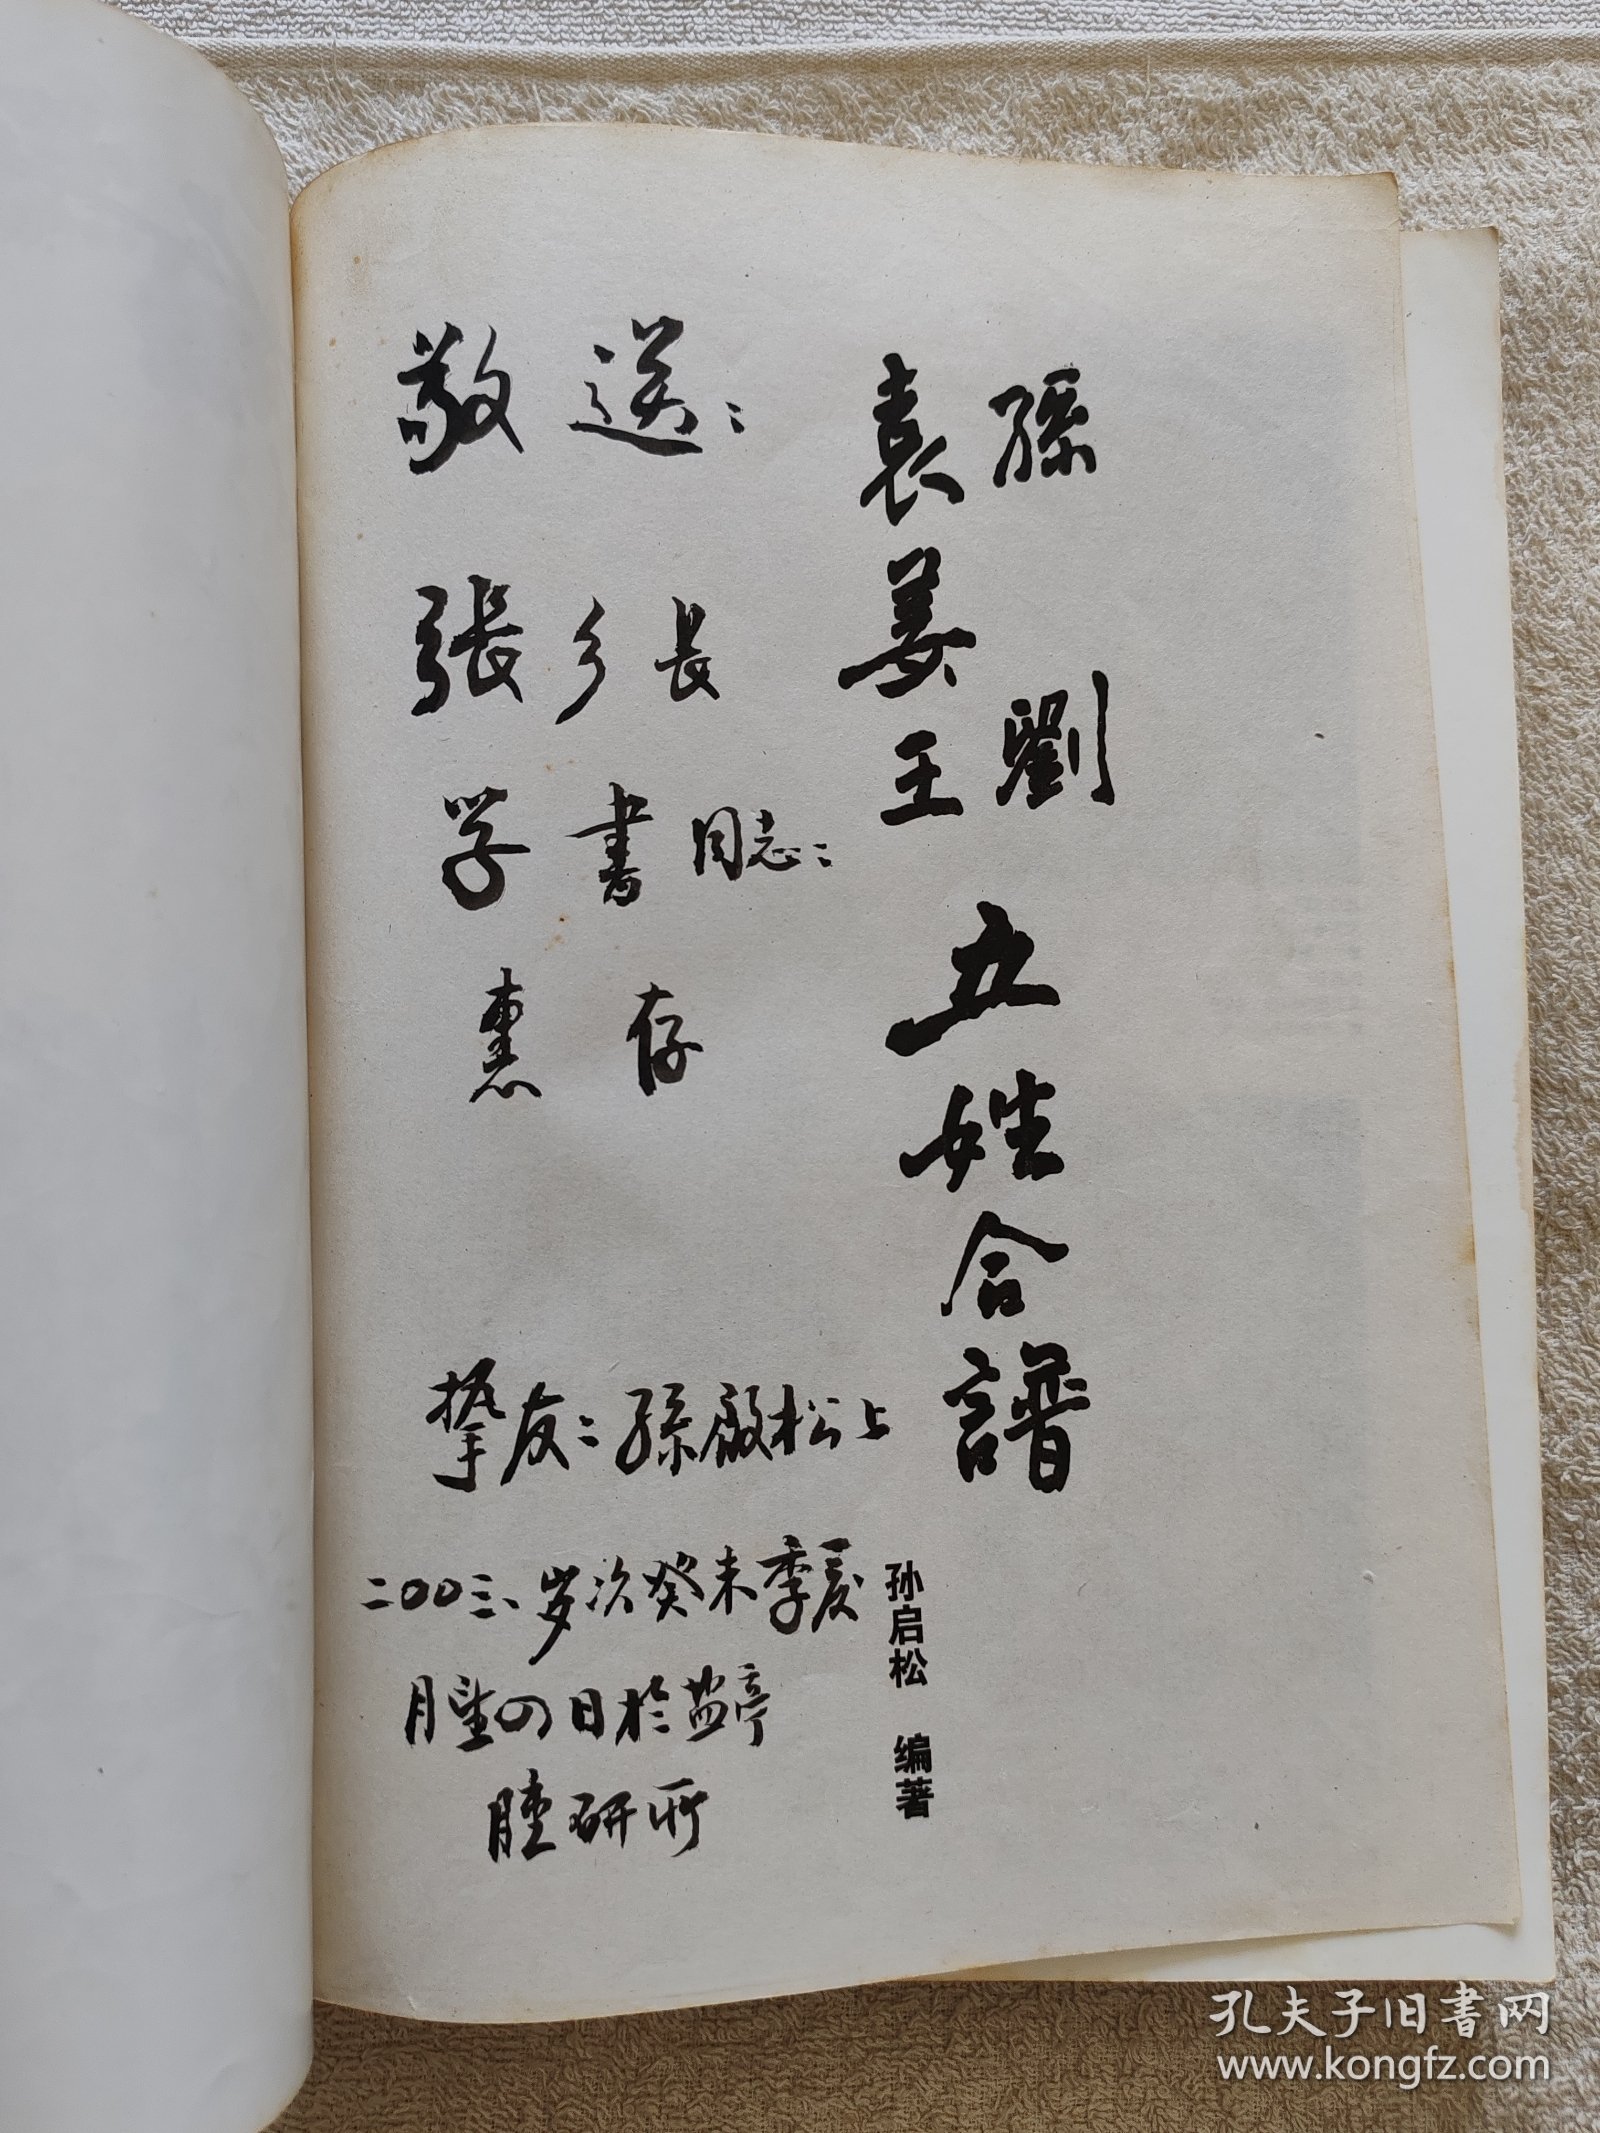 孫 劉
袁 姜 王
五姓合譜
孙启松 编著
敬送：
張乡长
学書同志：
惠存
挚友：孫啟松上
二00三、岁次癸未季夏
月望四日於盐亭
嫘研所
孔夫子旧书网
www.kongfz.com